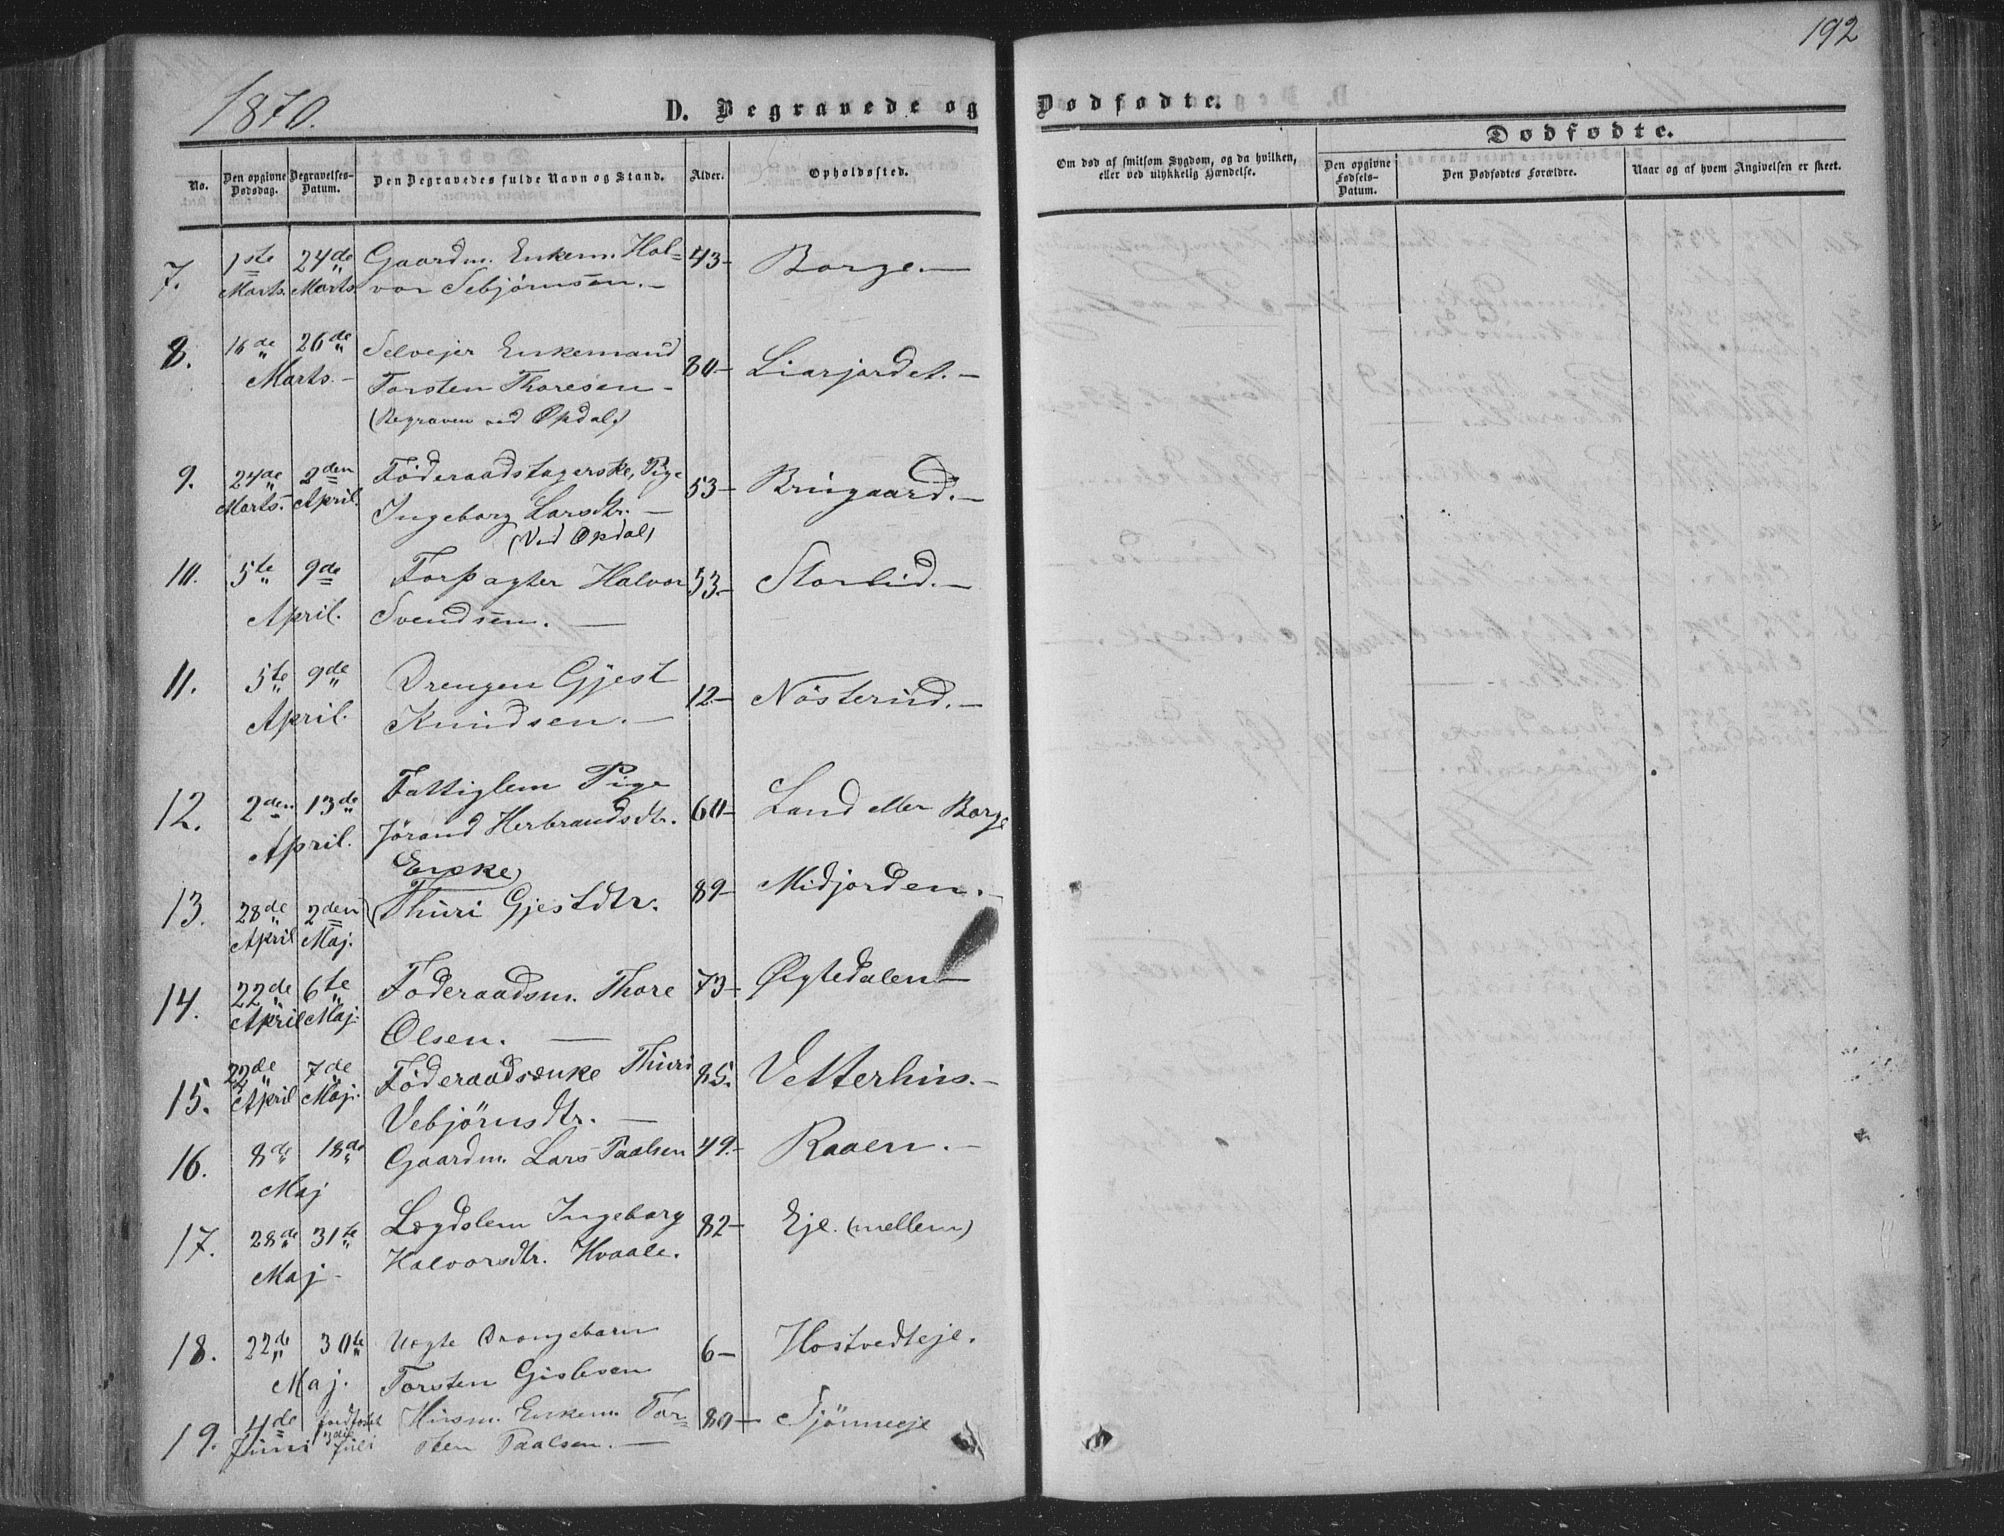 192
1870.
D. Begravede og Dødfødte.
Dødfødte.
No.
Den opgivne Dødsdag.
Begravelses-Datum.
Den Begravedes fulde Navn og Stand.
Alder.
Opholdssted.
Om død af smitsom Sygdom, og da hvilken,
eller ved ulykkelig Hændelse.
Den opgivne Fødsels-Datum.
Den Dødfødtes Forældre.
Naar og af hvem Angivelsen er skeet.
7. 1ste 24de Gaardm. Enkem. Hal= 43- Borge.-
Marts. Marts. vor Sebjørnsen.-
8. 16de 26de Selvejer Enkemand 80- Liarjordet.-
Marts.- Torsten Thoresen-
(Begraven ved Opdal)
9. 24de 2den Föderaadstagerske, Pige 53- Bringaard.-
Marts.- April. Ingeborg Larsdtr.-
(Ved Opdal)
10. 5te 9de Forpagter Halvor 53.- Storlid.-
April. Svendsen.-
11. 5te 9de Drengen Gjest 12- Nösterud.-
April. Knudsen.-
12. 2den 13de Fattiglem Pige 60- Land eller Borge
April. Jórand Herbrandsdtr.
Enke
13. 28de 2den (Thuri Gjestdtr. 89- Midjorden.-
April Maj.
14. 22de 6te Föderaadsm. Thore 73- Øygtedalen-
April Maj. Olsen.-
15. 22de 7de Föderaadsenke Thuri 85. Vetterhus.-
April Maj. Vebjörnsdtr.-
16. 8de 18de Gaardm. Lars Paalsen 49.- Raaen.-
Maj
17. 28de 31te Lægdslem Ingeborg 82- Eje. (mellem)
Maj- Halvorsdtr. Hvaale.
18. 22de 30te Uægte Drengebarn 6- Hostvedteje.
Maj. Torsten Gislesen
19. 4de Jordfæstet Husm. Enkem. Tor= 80- Tjönneeje
Juni Juli sten Paalsen.-